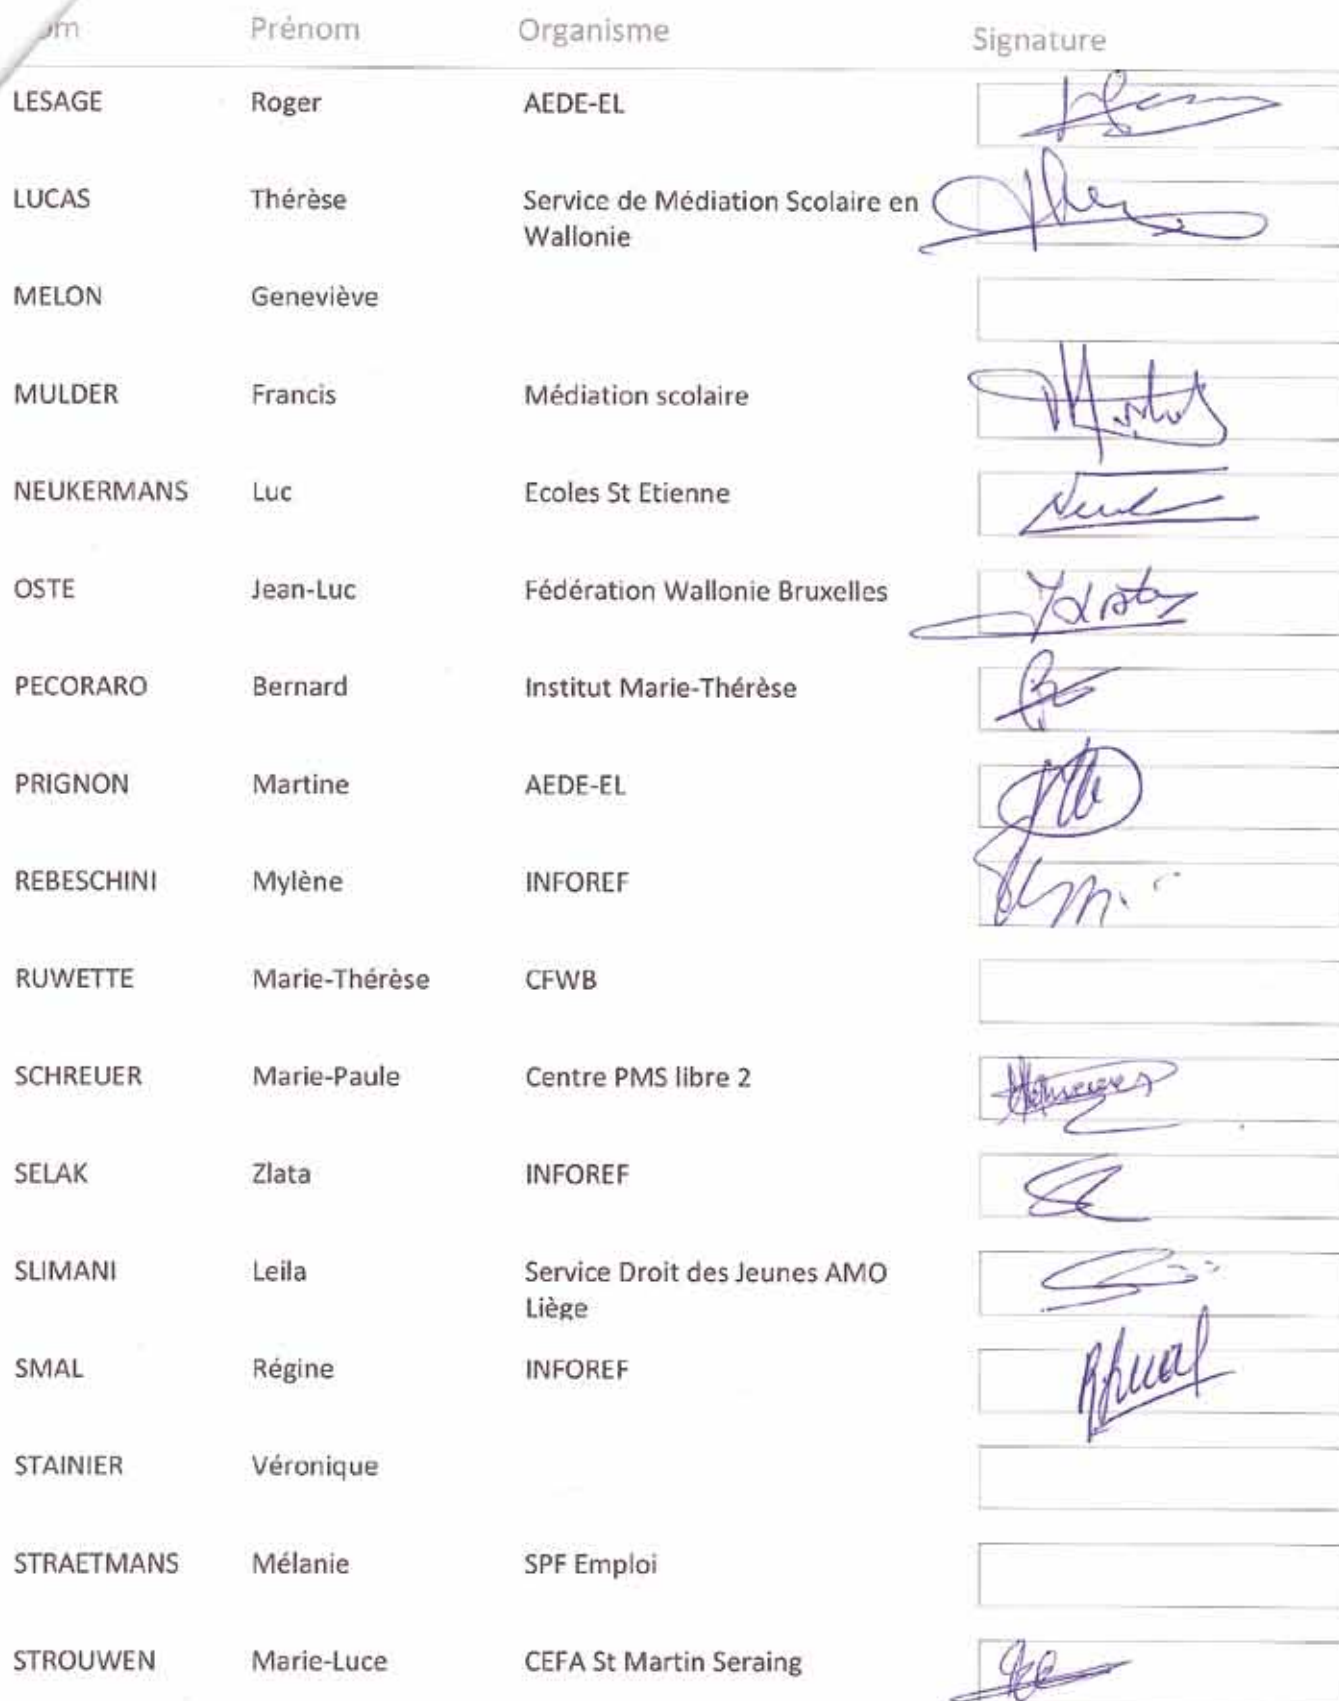 Prénom Organisme Signature
LESAGE Roger AEDE-EL
LUCAS Thérèse Service de Médiation Scolaire en
Wallonie
MELON Geneviève
MULDER Francis Médiation scolaire
NEUKERMANS Luc Ecoles St Etienne
OSTE Jean-Luc Fédération Wallonie Bruxelles
PECORARO Bernard Institut Marie-Thérèse
PRIGNON Martine AEDE-EL
REBESCHINI Mylène INFOREF
RUWETTE Marie-Thérèse CFWB
SCHREUER Marie-Paule Centre PMS libre 2
SELAK Zlata INFOREF
SLIMANI Leila Service Droit des Jeunes AMO
Liège
SMAL Régine INFOREF
STAINIER Véronique
STRAETMANS Mélanie SPF Emploi
STROUWEN Marie-Luce CEFA St Martin Seraing